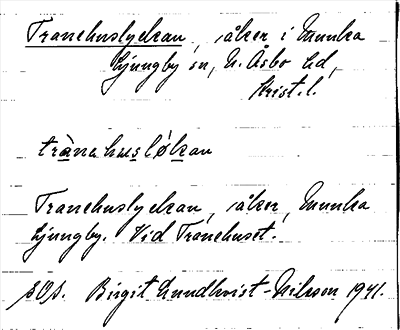 Tranehuslyckan, åker i Munka
Ljungby sn, N. Åsbo hd,
Krist. l.
trànahusløkan
Tranehuslyckan, åker, Munka
Ljungby. Vid Tranehuset.
Birgit Lundkvist-Nilsson 1941.